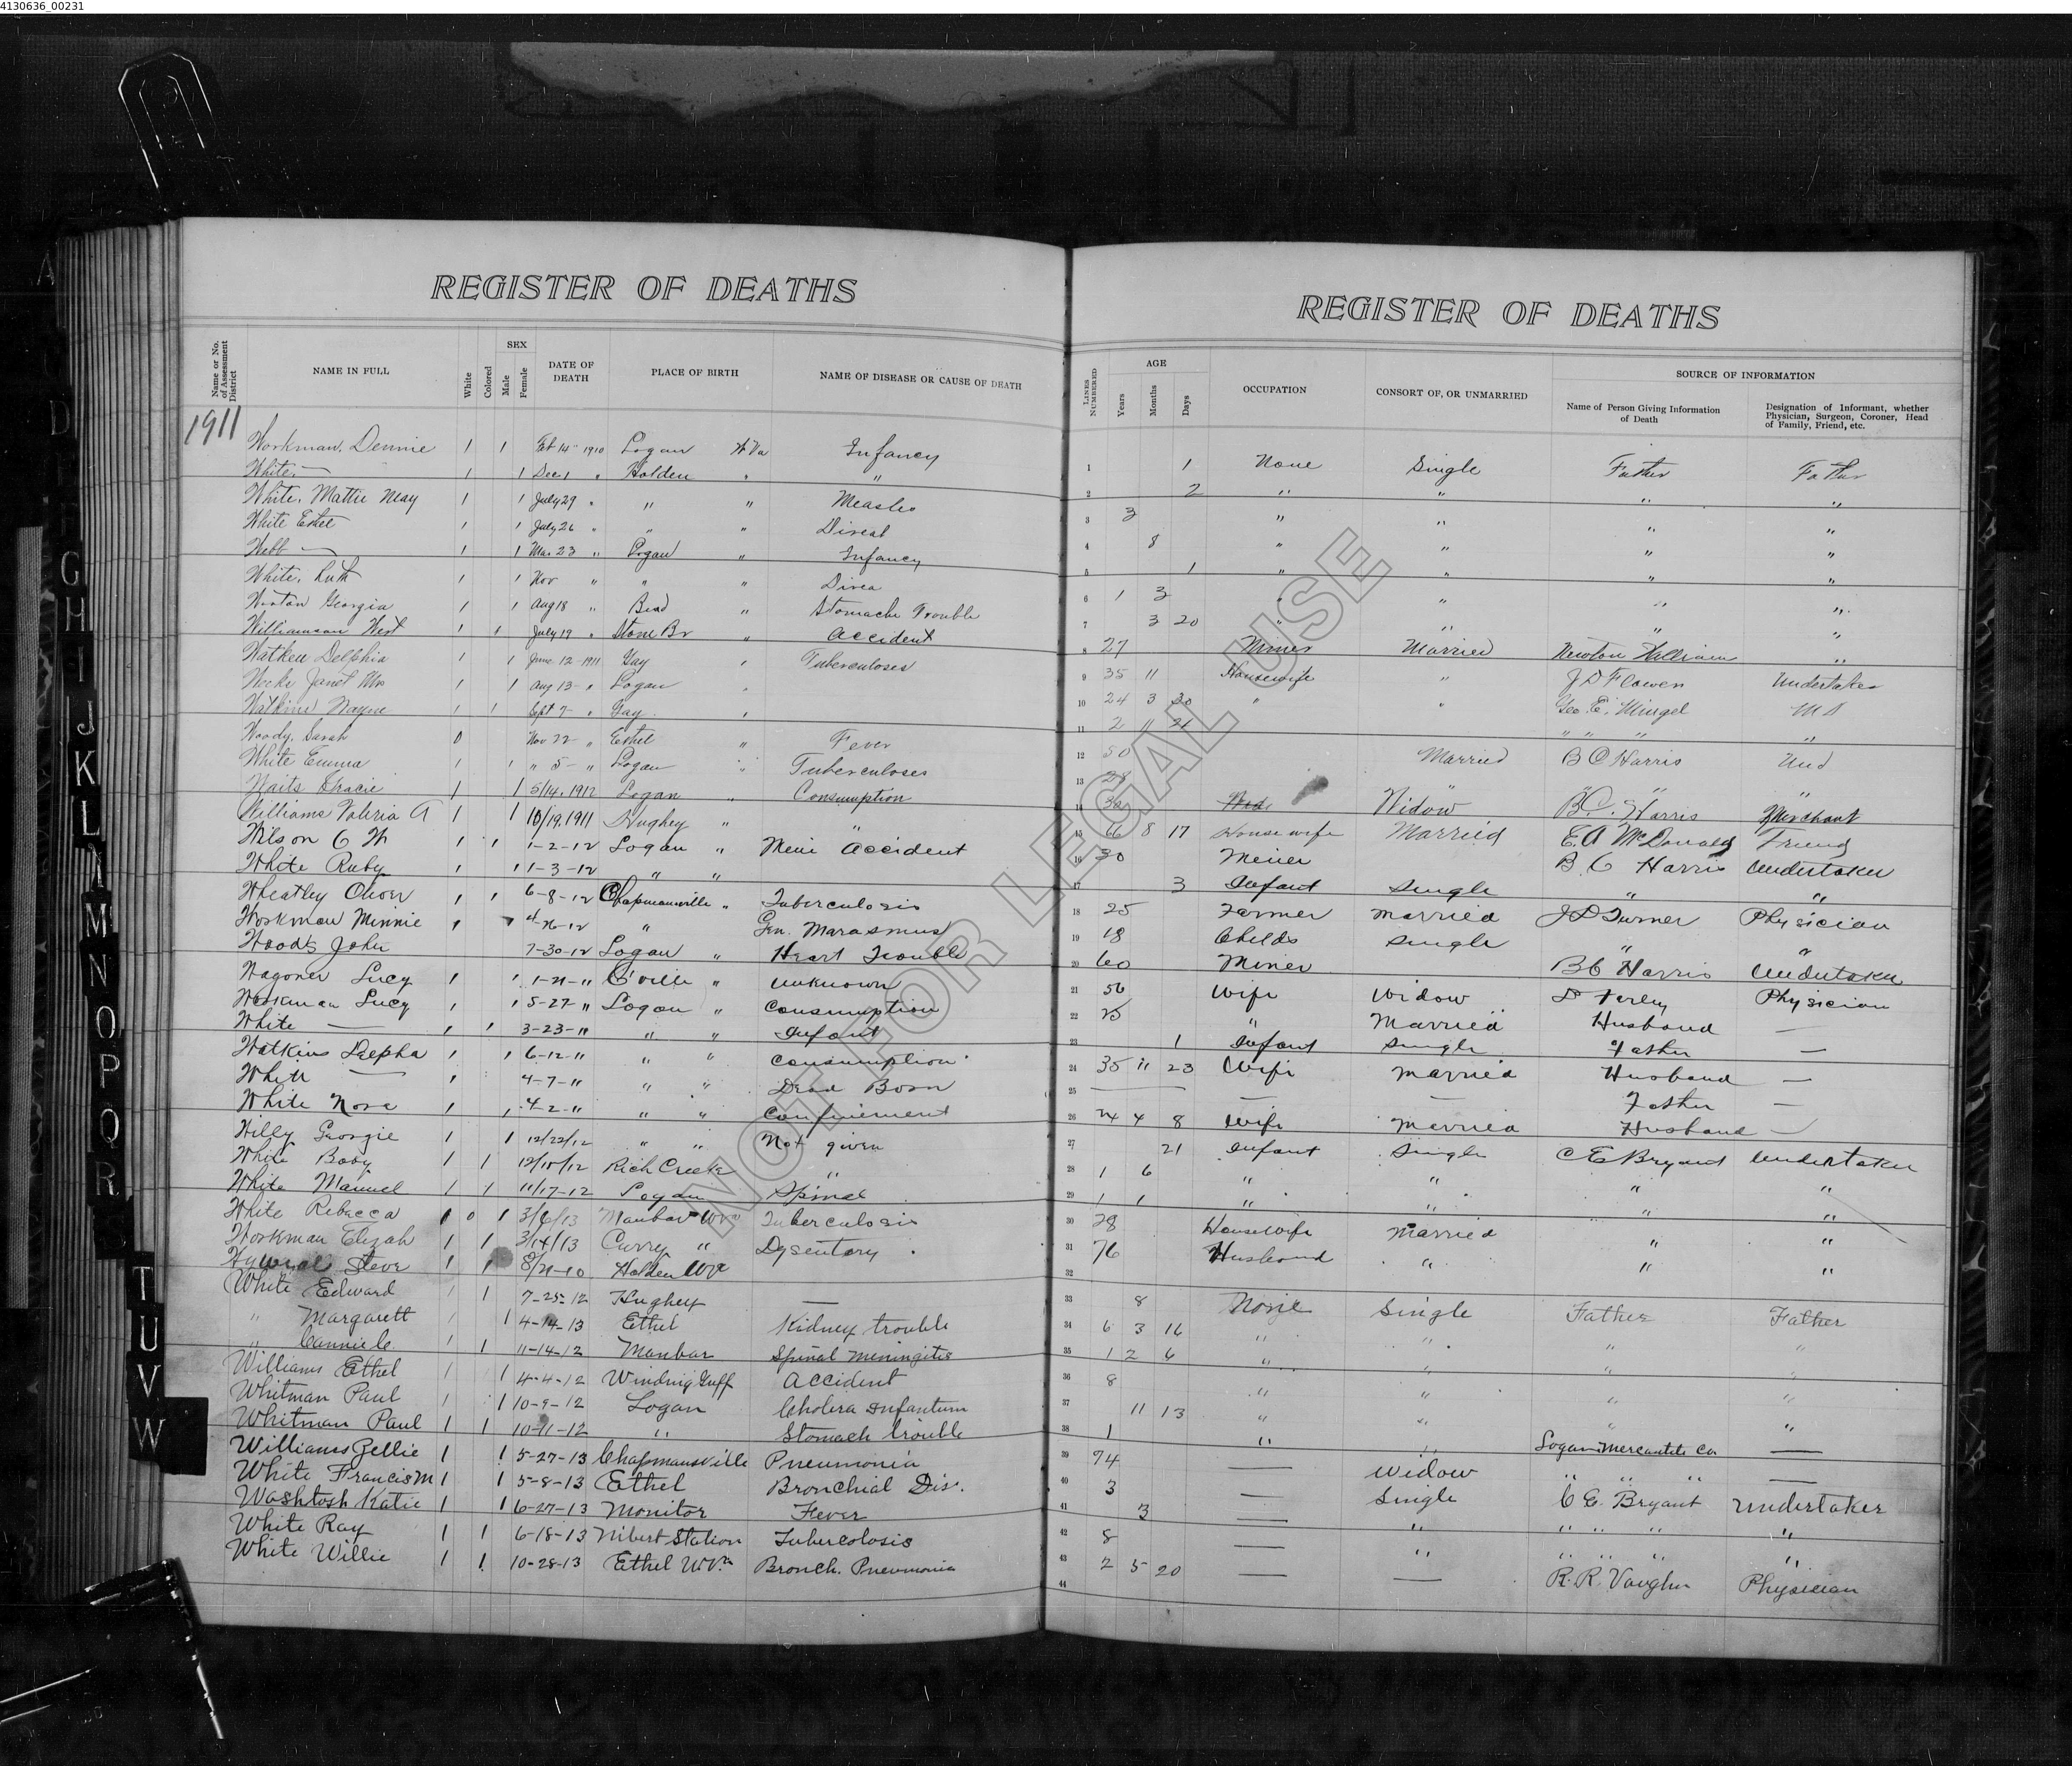 4130636_00231
REGISTER OF DEATHS
Name or No. of Assessment District
NAME IN FULL
White
Colored
SEX
Male
Female
DATE OF DEATH
PLACE OF BIRTH
NAME OF DISEASE OR CAUSE OF DEATH
1911
Workman, Dennie 1 1 Feb 14 1910 Logan W Va Infancy
White — 1 1 Dec 1 " Holden " "
White, Mattie May 1 1 July 29 " " " Measles
White Ethel 1 1 July 26 " " "
Webb — 1 1 Mar 23 " Logan " Infancy
White, Ruth 1 1 Nov " " "
Georgia 1 1 Aug 18 " " Stomache Trouble
Williamson West 1 1 July 19 " Stone Br " Accident
Delphia 1 1 June 12 1911 Gay " Tuberculoses
Janet Mrs 1 1 Aug 13 " Logan "
Watkins Wayne 1 1 Sept 7 " Gay "
Woody, Sarah 0 Nov 22 " Ethel " Fever
White Emma 1 1 " 5 " Logan " Tuberculoses
Waits Gracie 1 1 5/14, 1912 Logan " Consumption
Williams Valeria A 1 1 10/19, 1911 Hughey " "
Wilson C W 1 1 1-2-12 Logan " Mine Accident
White Ruby 1 1-3-12 " "
Wheatley Oliver 1 1 6-8-12 Chapmansville " Tuberculosis
Workman Minnie 1 1 4-26-12 " Gen. Marasmus
Woods John 7-30-12 Logan " Heart Trouble
Wagoner Lucy 1 1 1-21-" C'ville " Unknown
Workman Lucy 1 1 5-27 " Logan " Consumption
White — 1 1 3-23-" " " Infant
Watkins Delpha 1 1 6-12-" " " Consumption
White — 1 4-7-" " " Dead Born
White Nora 1 1 4-2-" " " Confinement
Willy Georgie 1 1 12/22/12 " " Not given
White Baby 1 1 12/15/12 Rich Creek "
White Manuel 1 1 11/17-12 Logan Spinal
White Rebecca 1 0 1 3/6/13 Manbar WVa Tuberculosis
Workman Elijah 1 1 3/14/13 Curry " Dysentary
Steve 1 1 8/21-10 Holden WVa
White Edward 1 1 7-25-12 Hughey —
" Margarett 1 1 4-14-13 Ethel Kidney trouble
" Cannie C. 1 1 11-14-12 Manbar Spinal Meningitis
Williams Ethel 1 1 4-4-12 Winding Gulf Accident
Whitman Paul 1 1 10-9-12 Logan Cholera Infantum
Whitman Paul 1 1 10-11-12 " Stomach trouble
Williams Zellie 1 1 5-27-13 Chapmansville Pneumonia
White Francis M 1 1 5-8-13 Ethel Bronchial Dis.
Washtosh Katie 1 1 6-27-13 Monitor Fever
White Ray 1 1 6-18-13 Nibert Station Tubercolosis
White Willie 1 1 10-28-13 Ethel W.Va. Bronch. Pneumonia
REGISTER OF DEATHS
LINES NUMBERED
AGE
Years
Months
Days
OCCUPATION
CONSORT OF, OR UNMARRIED
SOURCE OF INFORMATION
Name of Person Giving Information of Death
Designation of Informant, whether Physician, Surgeon, Coroner, Head of Family, Friend, etc.
1 1 None Single Father Father
2 2 " " " "
3 3 " " " "
4 8 " " " "
5 1 " " " "
6 1 3 " " " "
7 3 20 " " " "
8 27 Miner Married Newton "
9 35 11 Housewife " J D Undertaker
10 24 3 30 " " Geo. E. M D
11 2 11 21 " " " "
12 50 Married B C Harris Und
13 28 " " "
14 30 Widow B. C. Harris Merchant
15 66 8 17 Housewife Married E. A McDonald Friend
16 30 Miner B. C Harris Undertaker
17 3 Infant Single " "
18 25 Farmer Married J D Turner Physician
19 18 Childs Single " "
20 60 Miner B C Harris Undertaker
21 56 Wife Widow Farley Physician
22 25 " Married Husband —
23 1 Infant Single Father —
24 35 11 23 Wife Married Husband —
25 — — — — Father —
26 24 4 8 Wife Married Husband —
27 21 Infant Single C E Bryant Undertaker
28 1 6 " " " "
29 1 1 " " " "
30 28 Housewife Married " "
31 76 Husband " " "
32
33 8 None Single Father Father
34 6 3 16 " " " "
35 1 2 6 " " " "
36 8 " " " "
37 11 13 " " " "
38 1 " " Logan Mercantile Co —
39 74 — Widow " " " —
40 3 — Single C E. Bryant Undertaker
41 3 — " " " " "
42 8 — " " " " "
43 2 5 20 — — R. R. Vaughn Physician
44
NOT FOR LEGAL USE
A
D
G
H
I
J
K
L
M
N
O
P
Q
R
T
U
V
W